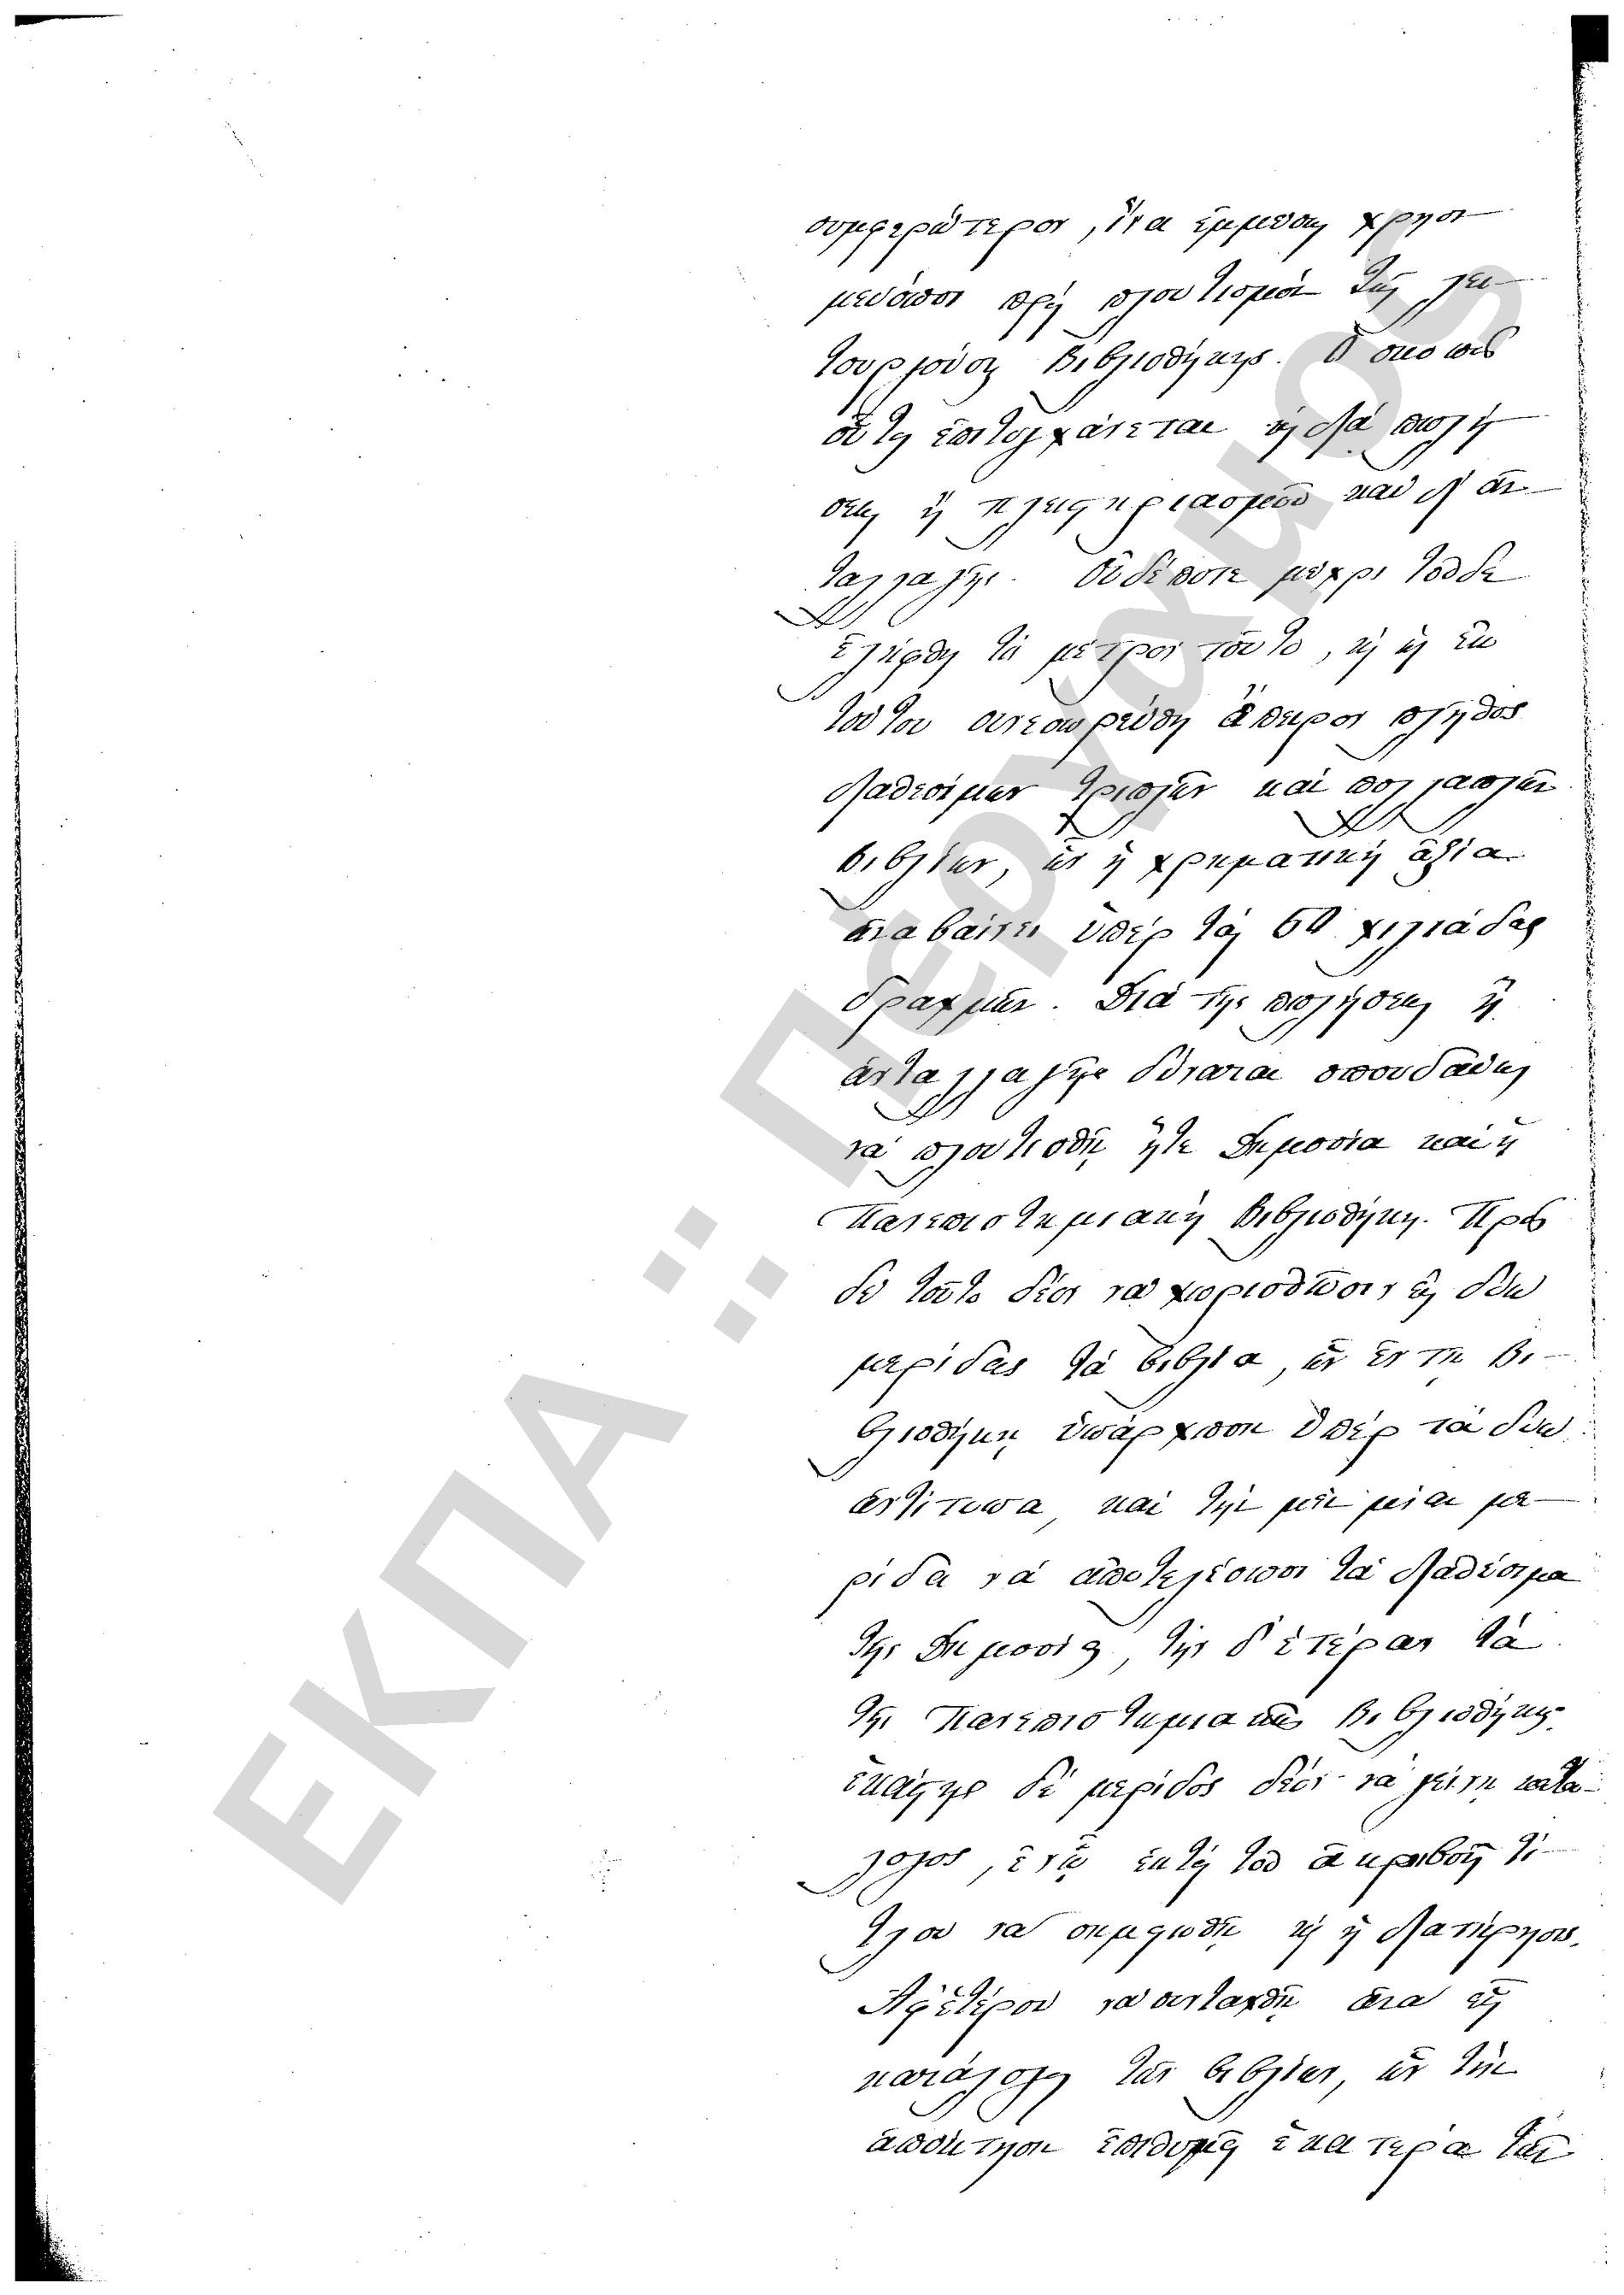 συμφερώτερον, ἵνα ἐμμέσως χρησι-
μεύσωσι πρὸς πλουτισμὸν τῆς λει-
τουργούσης Βιβλιοθήκης. Ὁ σκοπὸς
οὗτος ἐπιτυγχάνεται ἢ διὰ πωλή-
σεως ἢ πλειστηριασμοῦ καὶ δι' ἀν-
ταλλαγῆς. Οὐδέποτε μέχρι τοῦδε
ἐλήφθη τὸ μέτρον τοῦτο, καὶ ἐκ
τούτου συνεσωρεύθη ἄπειρον πλῆθος
διαθεσίμων τριπλῶν καὶ πολλαπλῶν
βιβλίων, ὧν ἡ χρηματικὴ ἀξία
ἀναβαίνει ὑπὲρ τὰς 60 χιλιάδας
δραχμῶν. Διὰ τῆς πωλήσεως ἢ
ἀνταλλαγῆς δύναται σπουδαίως
νὰ πλουτισθῇ ἥτε Δημοσία καὶ ἡ
Πανεπιστημιακὴ Βιβλιοθήκη. Πρὸς
δὲ τοῦτο δέον νὰ χωρισθῶσιν εἰς δύω
μερίδας τὰ βιβλία, ὧν ἐν τῇ Βι-
βλιοθήκῃ ὑπάρχουσιν ὑπὲρ τὰ δύω
ἀντίτυπα, καὶ τὴν μὲν μίαν με-
ρίδα νὰ ἀποτελέσωσι τὰ διαθέσιμα
τῆς Δημοσίας, τὴν δ' ἑτέραν τὰ
τῆς Πανεπιστημιακῆς Βιβλιοθήκης.
ἑκάστης δὲ μερίδος δέον νὰ γείνῃ κατά-
λογος, ἐν ᾧ ἐκτὸς τοῦ ἀκριβοῦς τί-
τλου νὰ σημειωθῇ καὶ ἡ διατήρησις.
Ἀφ' ἑτέρου νὰ συνταχθῇ ἀνὰ εἷς
κατάλογος τῶν βιβλίων, ὧν τὴν
ἀπόκτησιν ἐπιθυμεῖ ἑκατέρα τῶν
ΕΚΠΑ :: Πέργαμος